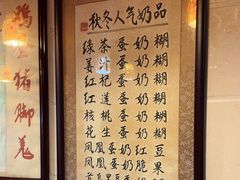 秋冬人气奶品
绿茶蛋奶糊
姜汁蛋奶糊
蛋奶糊
红莲蛋奶糊
核桃蛋奶糊
花生蛋奶糊
凤凰奶红豆
凰蛋奶脆果
猪脚羌